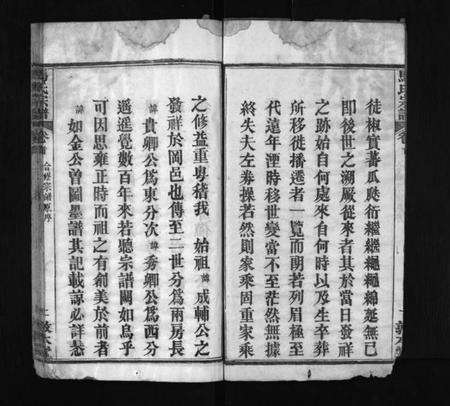 徒椒實蕃瓜瓞衍繼繼繩繩綿延無已
即後世之溯厥從來者其於當日發祥
之跡始自何處來自何時以及生卒葬
所移徙播遷者一覽而朗若列眉極至
代遠年湮時移世變當不至茫然無據
終失夫左券操若然則家乘固重家乘
之修益重粵稽我 始祖 諱 成輔公之
發祥於岡邑也傳至二世分為兩房長
諱 貴卿公為東分次 諱 秀卿公為西分
遥遥覺數百年來若聽宗譜闕如烏乎
可因思雍正時而祖之有創美於前者
諱 如金公曾圖墨譜其記載諒必詳悉
馬氏宗譜
卷首
合修宗譜原序
一
敦本堂